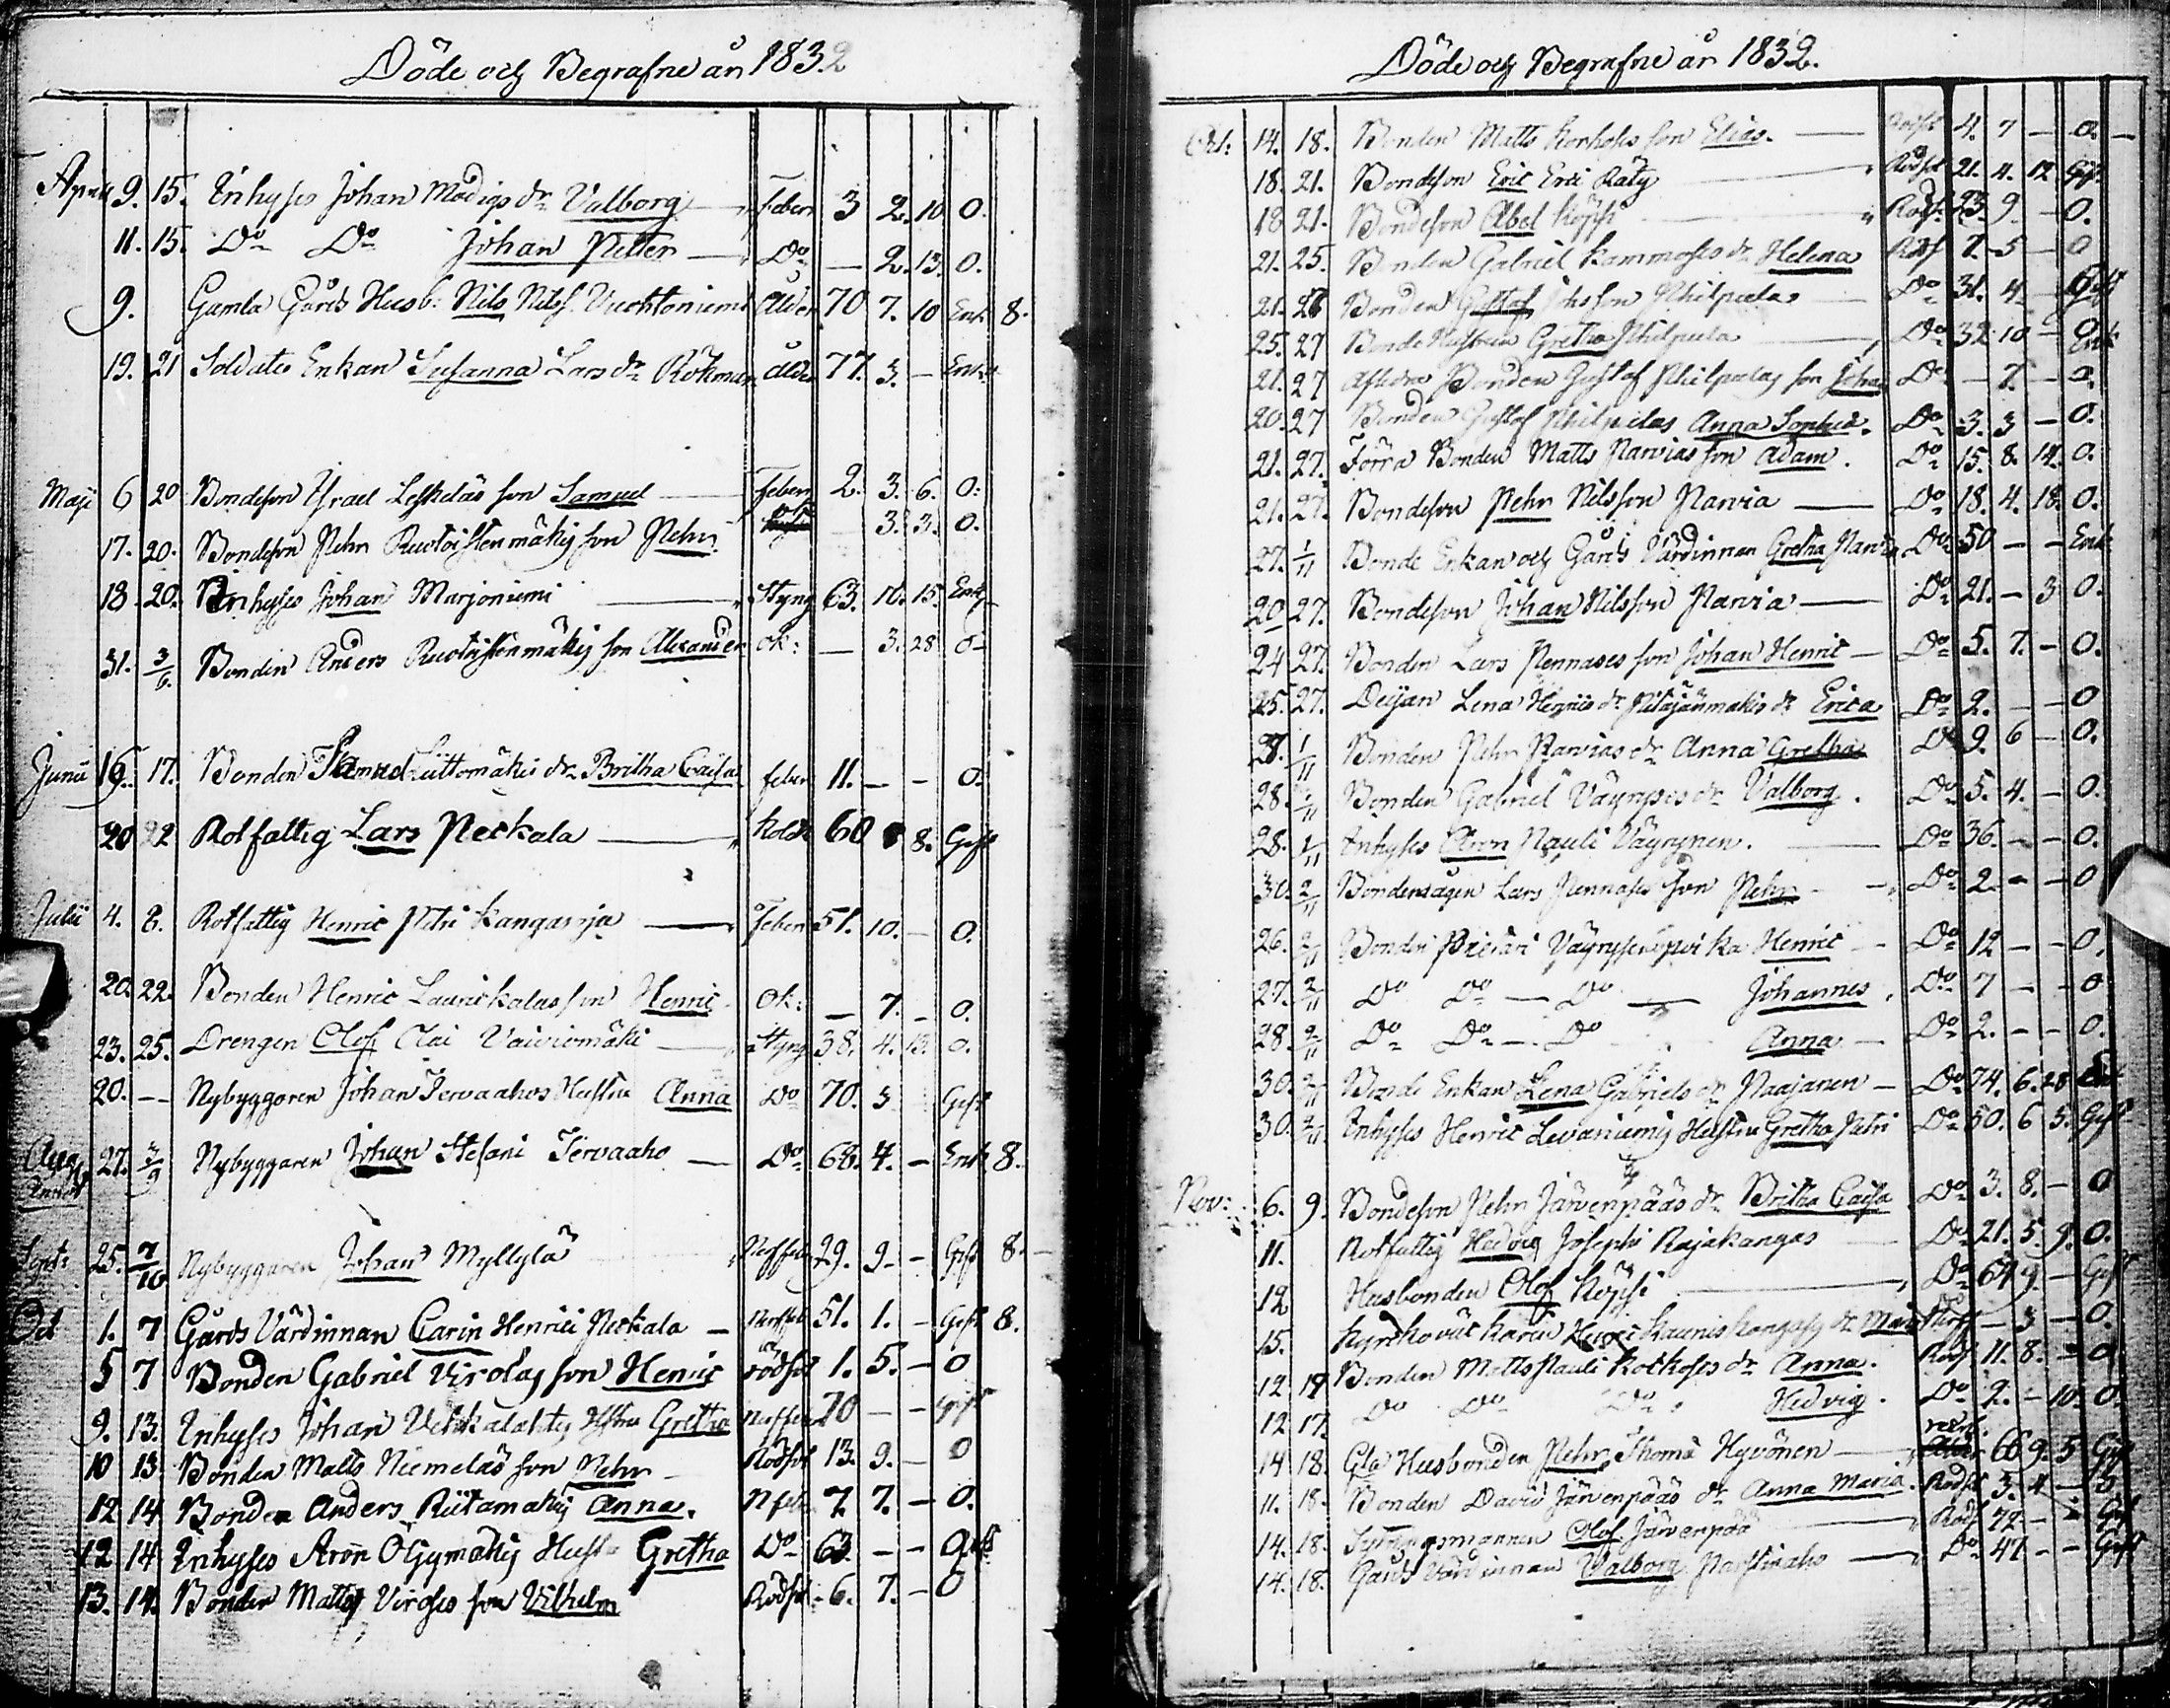 Döde och Begrafne år 1832
April 9. 15. Inhyses Johan Modigs dr Valborg — Feber 3 2. 10. 0.
11. 15. Do Do Johan Petter — Do — 2. 13. 0.
9. Gamla Gårds Husb: Nils Nilss. Vuohtoniemi Ålder 70 7. 10 Enk. 8.
19. 21 Soldats Enkan Susanna Lars dr Rökman Ålder 77. 3. — Enk.
Maji 6 20 Bondeson Israel Leskeläs son Samuel — Feber 2. 3. 6. 0.
17. 20. Bondeson Pehr Ruotoistenmäkis son Pehr — 3. 3. 0.
18 20. Inhyses Johan Marjoniemi — Styng 63. 10. 15. Enk
31. 3/6. Bonden Anders Ruotoistenmäkis son Alexander ok: — 3. 28 0
Junii 16. 17. Bonden Littomäkis dr Britha Caisa feber 11. — — 0.
20 22 Rotfattig Lars Peckala — 60 8 8. Gift
Julii 4. 8. Rotfattig Henric Petri Kangasrja — Feber 51. 10. — 0.
20. 22. Bonden Henric Laurikalas son Henric. Ok: — 7. — 0.
23. 25. Drengen Olof Clai Vaiviomäki — Styng 38. 4. 13. 0.
20. — Nybyggaren Johan Tervaahos Hustru Anna Do 70. 3 Gift
Aug. 27. 3/9 Nybyggaren Johan Stefani Tervaaho — Do 68. 4. — Enk 8.
Sept: 25. 7/10 Nybyggaren Johan Myllylä Nerffeb 29. 9. — Gift 8.
Oct 1. 7 Gårds Värdinnan Carin Henrici Peckala — Nerffeb 51. 1. — Gift 8.
5 7 Bonden Gabriel Virolas son Henric rödsot 1. 5. — 0
9. 13. Inhyses Johan Vehkalahtis Hstru Gretha Nerffeb 70 — — Gift
10 13 Bonden Matts Niemeläs son Pehr — Rödsot 13. 9. — 0
12 14 Bonden Anders Riitamäkis Anna. Nfeb 7. 7. — 0.
12 14 Inhyses Aron Öljymäkis Hustru Gretha Do 63. — — Gift
13. 14. Bonden Matts Viroses son Vilhelm Rödsot 6. 7. — 0
Döde och Begrafne år 1832.
Oct: 14. 18. Bonden Matts Korhoses son Elias. — 4. 7 — 0. —
18. 21. Bondeson Eric Erici Räty Rödsot 21. 4. 12 Gift
18 21. Bondeson Abel Köpsi Rods. 23. 9. — 0.
21. 25. Bonden Gabriel Kammoses dr Helena Röds 7. 5 — 0
21. 26 Bonden Gustaf Johsson Philpula — Do 31. 4 — Gift
25. 27 Bonde Hustrun Gretha Philpula Do 32 10 — Enk
21. 27 Aflidne Bonden Gustaf Philpulas son Johan Do — 7. — 0.
20. 27 Bonden Gustaf Philpulas Anna Sophia. Do 3. 3 — 0.
21. 27. Förra Bonden Matts Parvias son Adam. Do 15. 8. 14. 0.
21. 27. Bondeson Pehr Nilsson Parvia — Do 18. 4. 18. 0.
27. 1/11 Bonde Enkan och Gårds Värdinnan Gretha Parvia Do 50 — — Enk
20 27. Bondeson Johan Nilsson Parvia — Do 21. — 3 0.
24 27. Bonden Lars Pennases son Johan Henric — Do 5. 7. — 0.
25. 27. Deijan Lena Henrics dr Pitäjänmäkis dr Erica Do 2. — — 0
28. 1/11 Bonden Pehr Parvias dr Anna Gretha Do 9. 6 — 0.
28. 1/11 Bonden Gabriel Väyryses dr Valborg. Do 5. 4. — 0.
28. 1/11 Inhyses Aron Pauli Väyrynen. — Do 36. — — 0.
30. 2/11 Lars Pennases son Pehr — Do 2 — — 0
26. 2/11 Väyryses poika Henric — Do 12 — — 0.
27. 2/11 Do Do — Do — Johannes. Do 7 — — 0
28 2/11 Do Do — Do Anna — Do 2. — — 0.
30. 2/11 Bonde Enkan Lena Gabriels dr Paajanen — Do 74. 6. 28 Enk
30. 2/11 Inhyses Henric Levaniemis Hustru Gretha Petri Do 50. 6 5. Gift
Nov: 6. 9. Bondeson Pehr Järvenpääs dr Britha Caisa Do 3. 8. — 0
11. Rotfattig Hedvig Josephi Rajakangas — Do 21. 5. 9. 0.
12 Husbonden Olof Köpsi — Do 64 9. — Gift
15. Henric Kauniskangas dr — 3 — 0.
12 17 Bonden Matts Pauli Korhoses dr Anna. Röds 11. 8. — 0
12 17. Do Do Do Hedvig. Do 2. — 10. 0.
14 18. Gla Husbonden Pehr Thomä Hyvönen — 66 9. 5 Gift
11. 18. Bonden David Järvenpääs dr Anna Maria. Rödst 3. 4 — 0.
14. 18. Olof Järvenpää Röds 72 — — Gift
14. 18. Gårds Värdinnan Valborg — Do 47 — — Gift